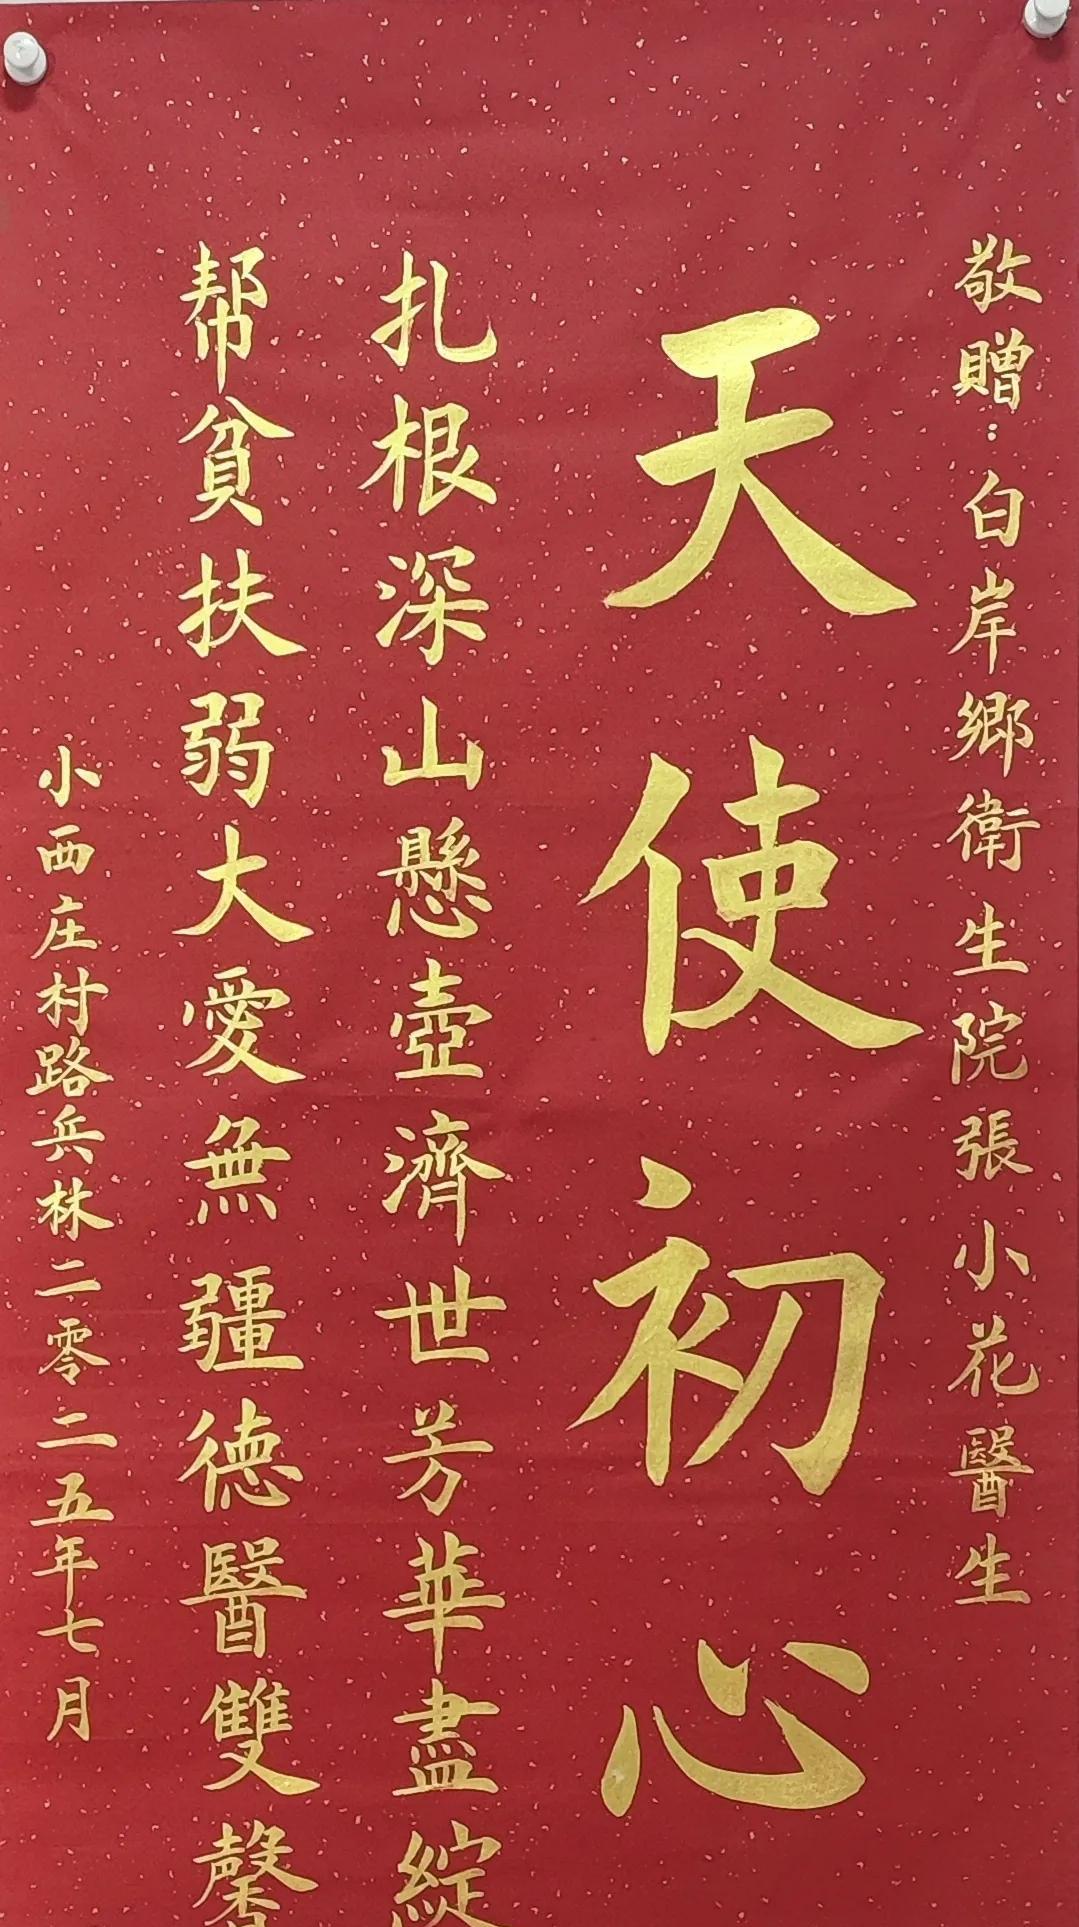 敬贈：白岸鄉衛生院張小花醫生
天使初心
扎根深山懸壺濟世芳華盡綻
帮貧扶弱大愛無疆德醫雙馨
小西庄村路兵林二零二五年七月